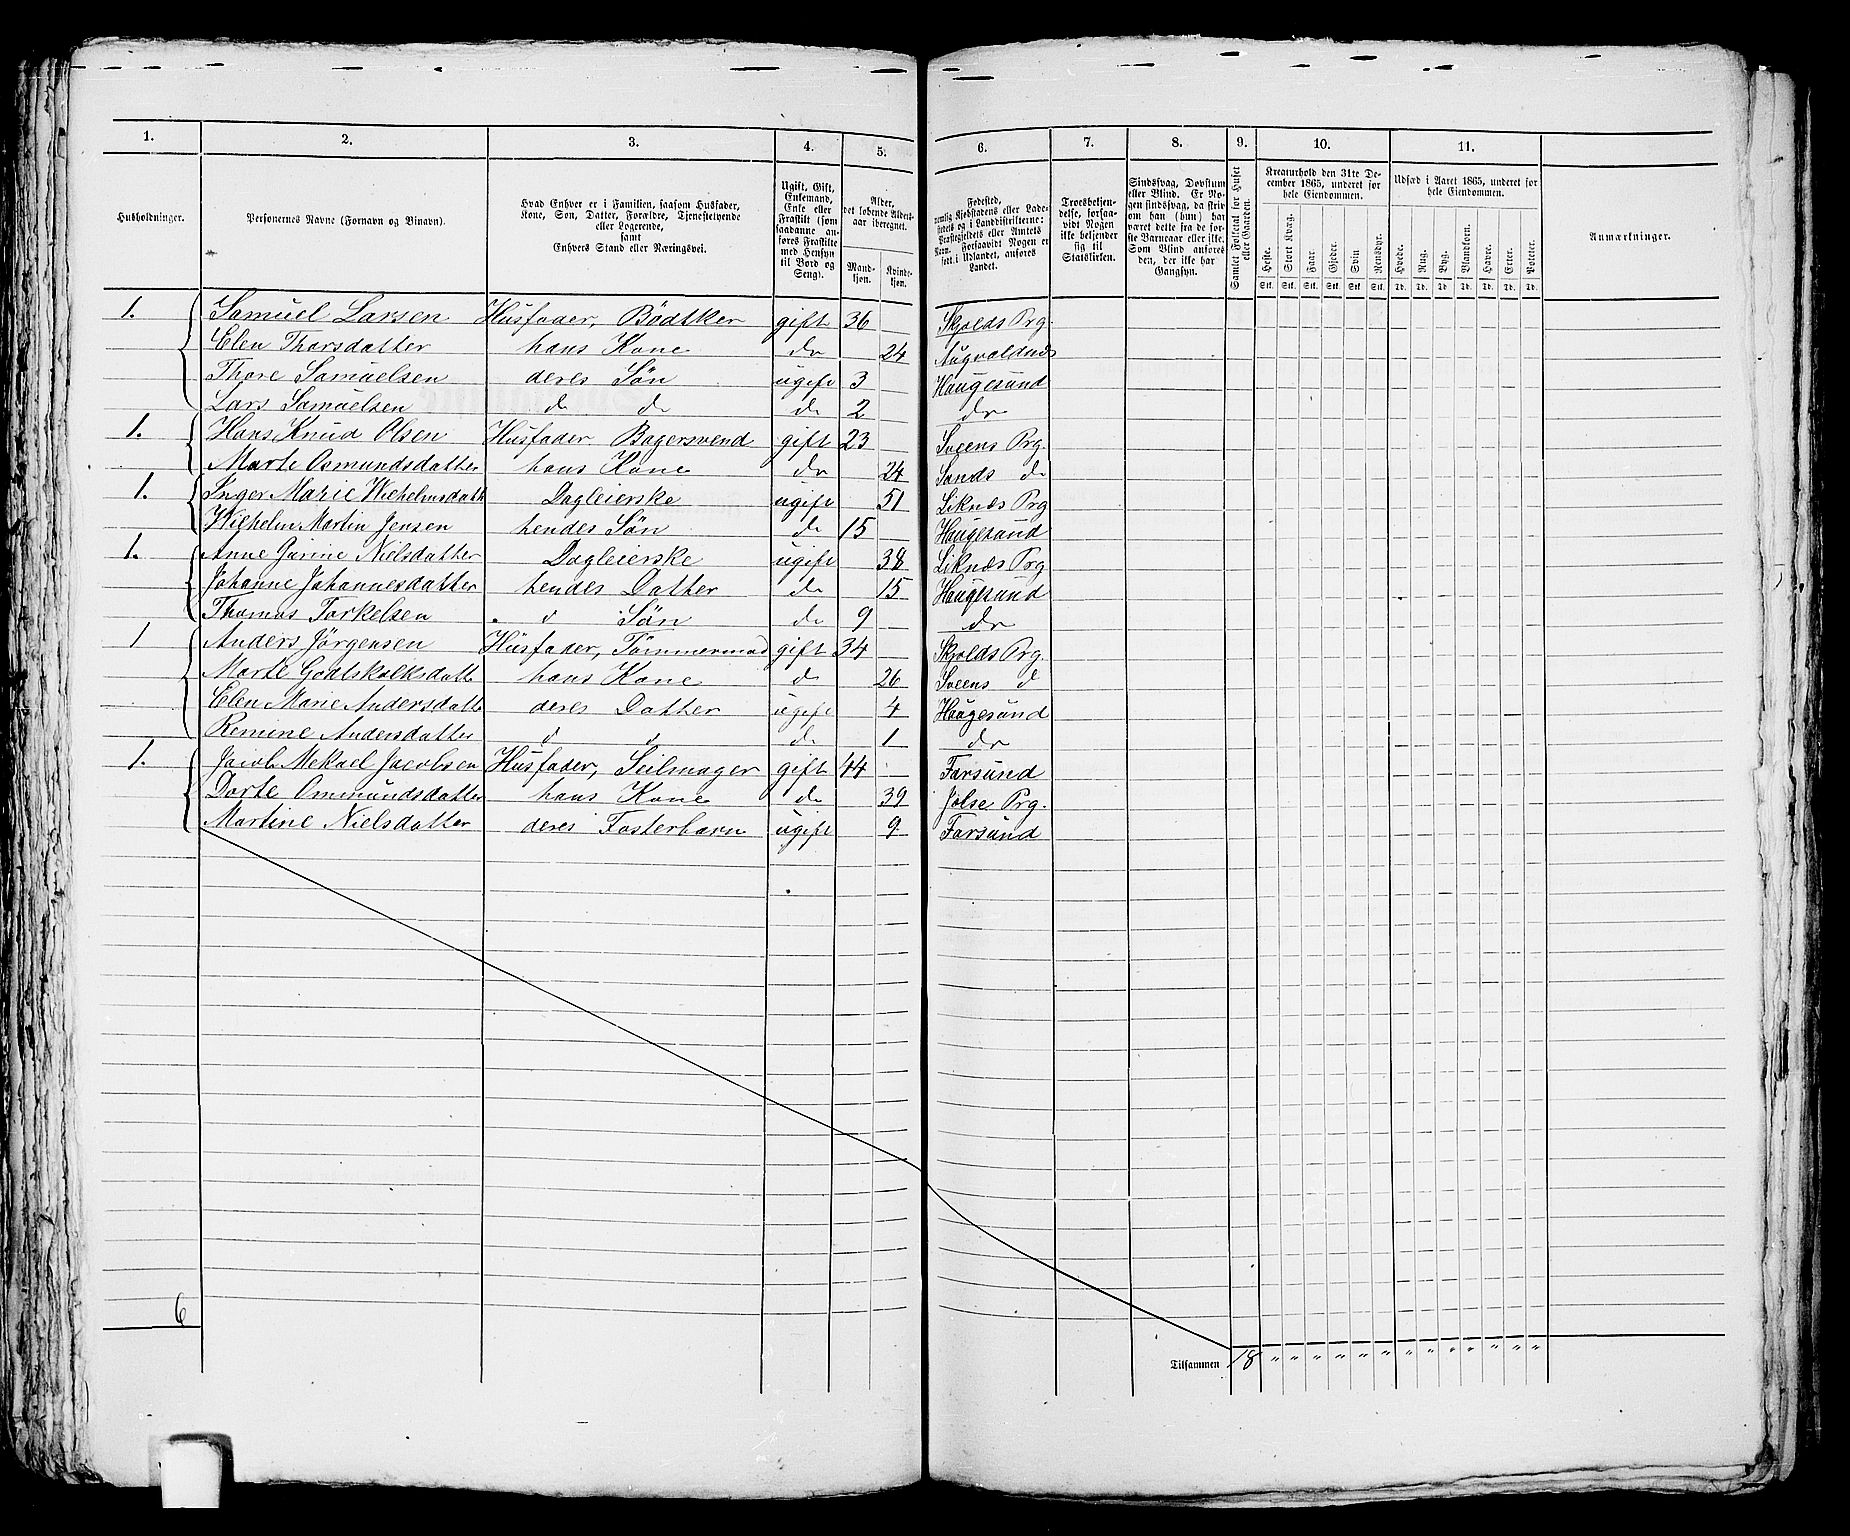 1. 2. 3. 4. 5. 6. 7. 8. 9. 10. 11.
Husholdninger.
Personernes Navne (Fornavn og Binavn).
Hvad Enhver er i Familien, saasom Husfader,
Kone, Søn, Datter, Forældre, Tjenestetyende
eller Logerende,
samt
Enhvers Stand eller Næringsvei.
Ugift, Gift,
Enkemand,
Enke eller
Fraskilt (som
saadanne an-
føres Fraskilte
med Hensyn
til Bord og
Seng).
Alder,
det løbende Alders-
aar iberegnet.
Mand-
kjøn.
Kvinde-
kjøn.
Fødested,
nemlig Kjøbstadens eller Lade-
stedets og i Landdistrikterne:
Præstegjeldets eller Amtets
Navn. Forsaavidt Nogen er
født i Udlandet, anføres
Landet.
Troesbekjen-
delse, forsaa-
vidt Nogen
ikke bekjender
sig til
Statskirken.
Sindssvag, Døvstum
eller Blind. Er No-
gen sindssvag, da skriv
om han (hun) har
været dette fra de før-
ste Barneaar eller ikke.
Som Blind anføres
den, der ikke har
Gangsyn.
Samlet Folketal for Huset
eller Gaarden.
Kreaturhold den 31te De-
cember 1865, underet for
hele Eiendommen.
Heste. Stort Kvæg. Faar Gjeder. Svin. Rensdyr.
Stk. Stk. Stk. Stk. Stk. Stk.
Udsæd i Aaret 1865, underet for
hele Eiendommen.
Hvede. Rug. Byg. Blandkorn. Havre. Erter. Poteter.
Td. Td. Td. Td. Td. Td. Td.
Anmærkninger.
1. Samuel Larsen Husfader, Bødtker gift 36 Skjolds Prg.
Elen Thorsdatter hans Kone do 24 Augvaldnæs
Thore Samuelsen deres Søn ugift 3 Haugesund
Lars Samuelsen do do do 2 do
1. Hans Knud Olsen Husfader Bagersvend gift 23 Sveens Prg.
Marte Osmundsdatter hans Kone do 24 Sands do
1. Inger Marie Wilhelmsdatt Dagleierske ugift 51 Liknæs Prg
Wilhelm Martin Jensen hendes Søn do 15 Haugesund
1. Anne Jarine Nielsdatter Dagleierske ugift 38 Liknæs Prg
Johanne Johannesdatter hendes Datter do 15 Haugesund
Thomas Torkelsen " d Søn do 9 do
1 Anders Jørgensen Husfader, Tømmermad gift 34 Skjolds Prg.
Marte Godtskalksdatt hans Kone do 26 Sveens d
Elen Marie Andersdatt deres Datter ugift 4 Haugesund
Remine Andersdatter d d do 1 do
1. Jacob Mekael Jacobsen Husfader, Seilmager gift 44 Farsund
Dorte Ommundsdatter hans Kone do 39 Jølse Prg.
Martine Nielsdatter deres Fosterbarn ugift 9 Farsund
6
Tilsammen 18 " " " " " " " " " " " " "